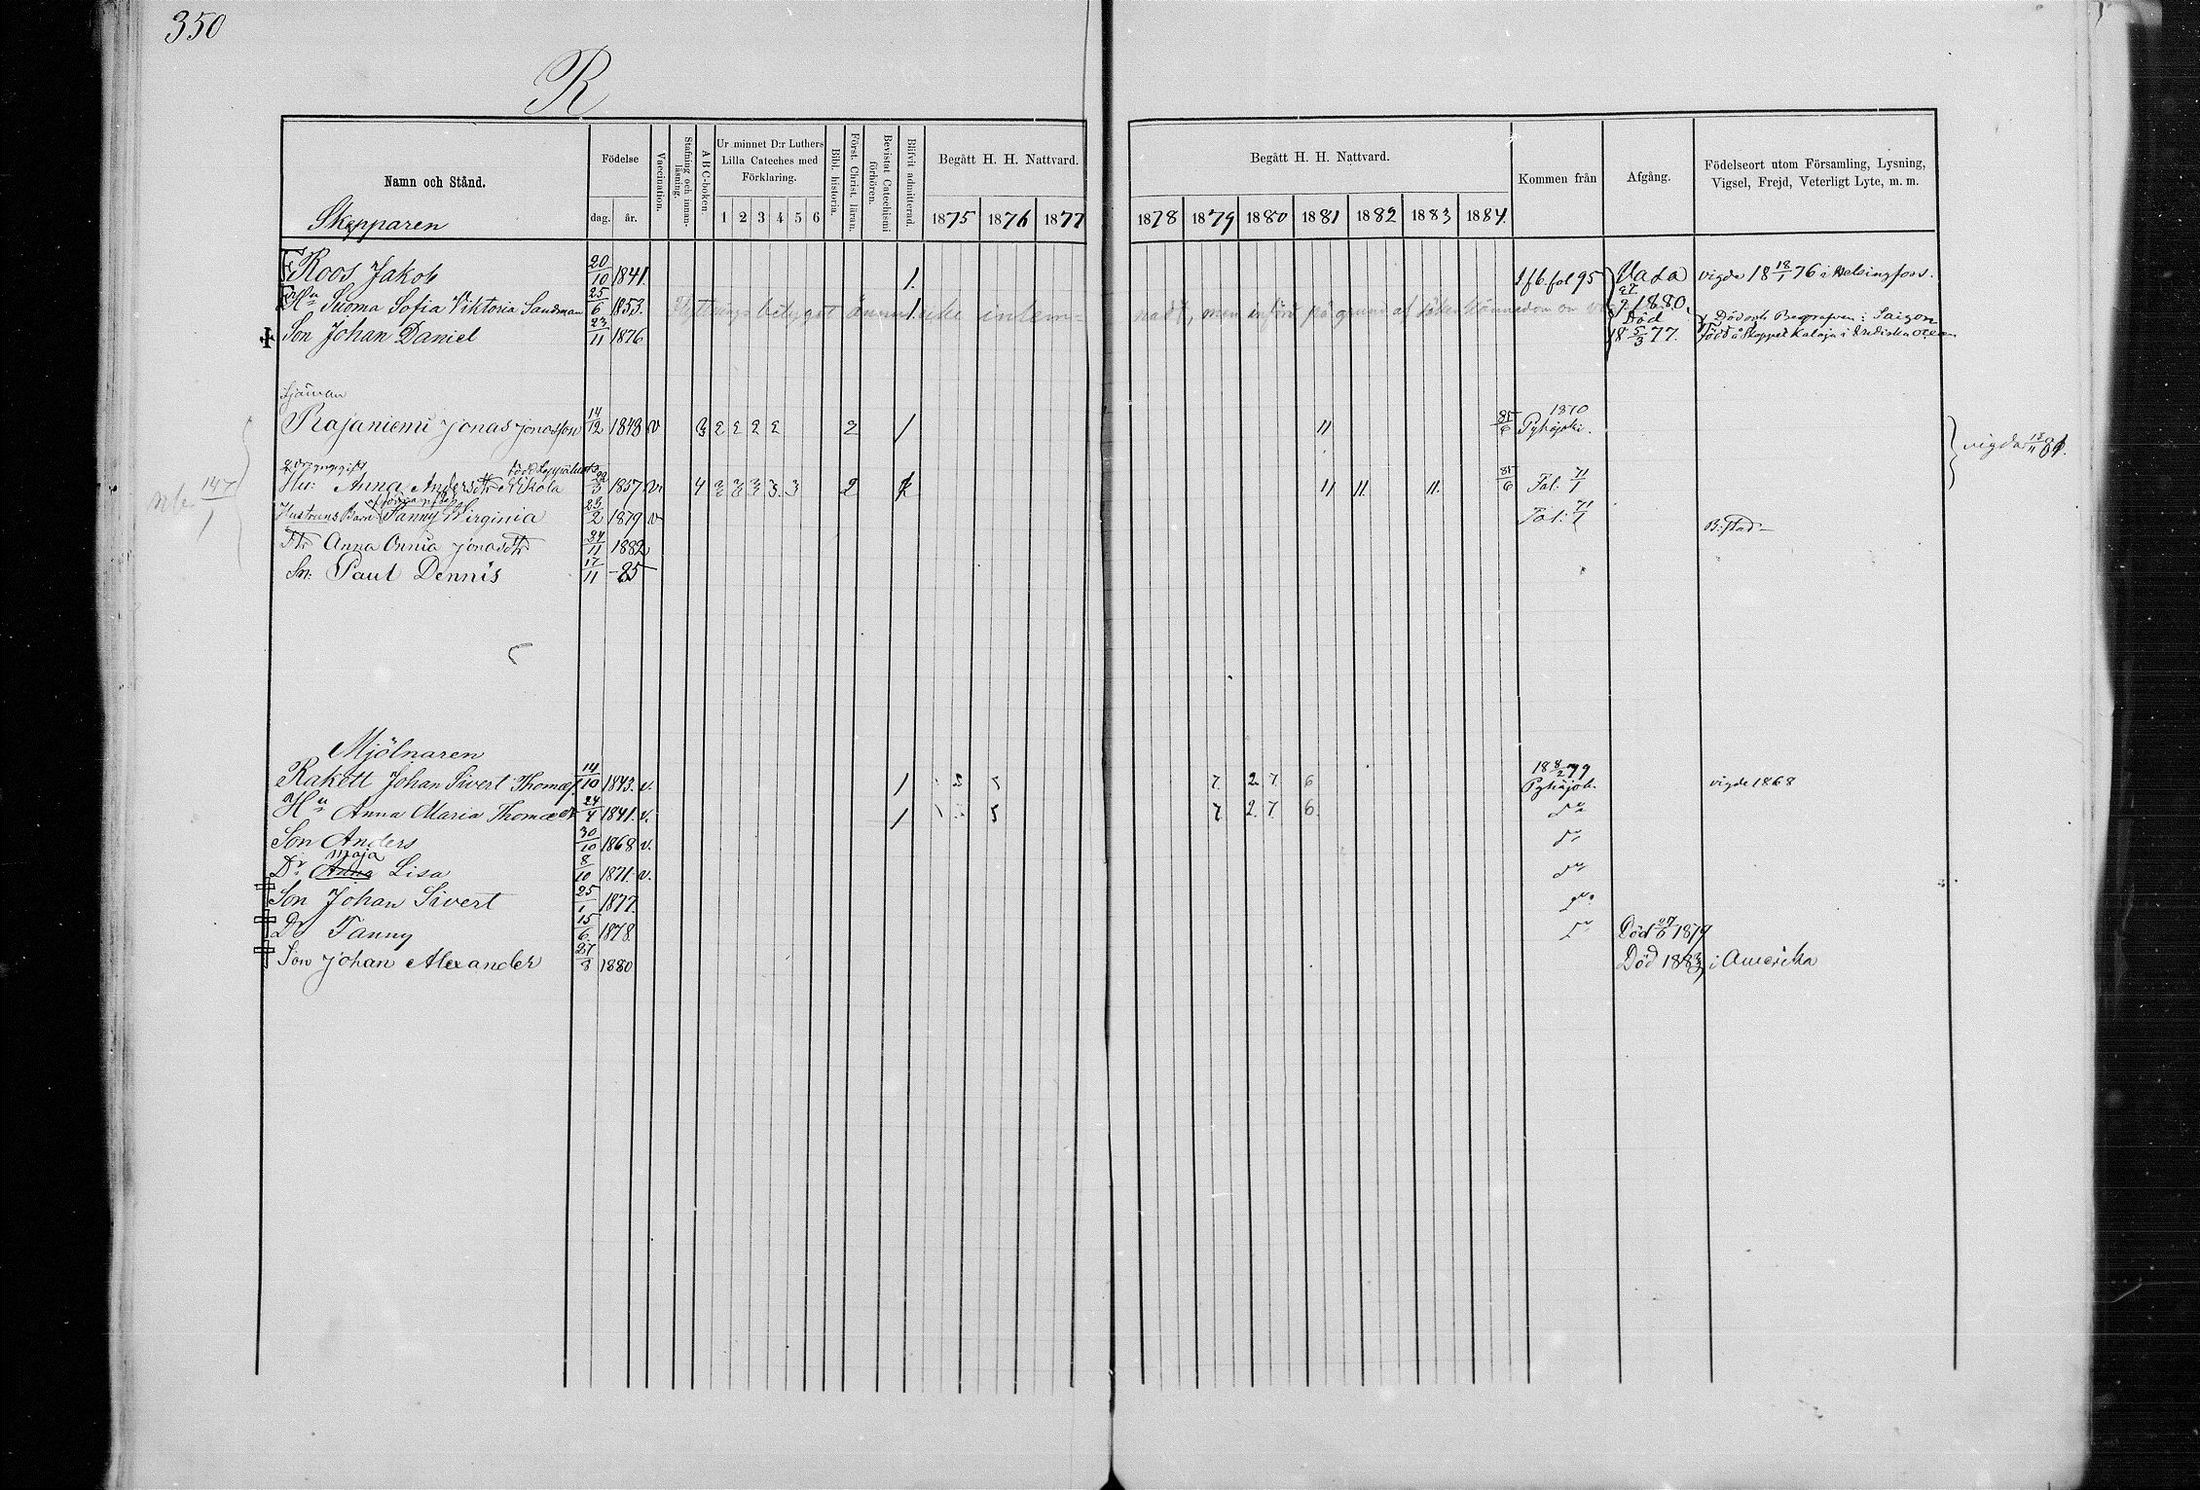 350
R
Namn och Stånd.
Födelse
dag. år.
Vaccination.
Stafning och innanläsning.
A B C-boken.
Ur minnet D:r Luthers Lilla Cateches med Förklaring.
1 2 3 4 5 6
Bibl. historia.
Först. Christ. läran.
Bevistat Catechismi förhören.
Blifvit admitterad.
Begått H. H. Nattvard.
1875 1876 1877
Begått H. H. Nattvard.
1878 1879 1880 1881 1882 1883 1884
Kommen från
Afgång.
Födelseort utom Församling, Lysning, Vigsel, Frejd, Veterligt Lyte, m. m.
Skepparen
Roos Jakob 20/10 1841. 1. 1 f b. fol 95 Vasa vigde 18 18/1 76 i Helsingfors.
Hu Suoma Sofia Viktoria Sandman 25/6 1853. Flyttningsbetyget ännu icke inlem- nadt, men införd på grund af 1880.
Son Johan Daniel 23/11 1876 Död 18 5/3 77. Född å Skeppet Kaleja i Indiska ocean
Död och Begrafven i Saigon
Sjöman
Rajaniemi Jonas Jonasson 14/12 1848 v 3 2 2 2 2 2 1 11 85/6 1870 Pyhäjoki. vigda 13/11 81.
Hu: Anna Andersdtr Nikola 3 1857 v. 4 3 3 3 3. 3 2 11 11. 11. 85/6 Fol: 71/1
nb. 147/1
Hustruns Barn Fanny Wirginia 23/2 1879 v Fol: 71/1 B: stad
Dtr Anna Onnia Jonasdtr 24/11 1882
Sn: Paul Dennis 17/11 -85
Mjölnaren
Rakett Johan Sivert Thomæs. 14/10 1843. v. 1 2 5 7. 2. 7. 6 18 8/2 79 Pyhäjok. vigde 1868
Hu Anna Maria Thomædr 24/4 1841. v. 1 5 7 2. 7 6. do
Son Anders 30/10 1868 v. do
Dr Anna maja Lisa 8/10 1871. v. do
Son Johan Sivert 25/1 1877. do
Dr Fanny 15/6. 1878. do Död 27/6 1879
Son Johan Alexander 27/8 1880 Död 1883 i Amerika